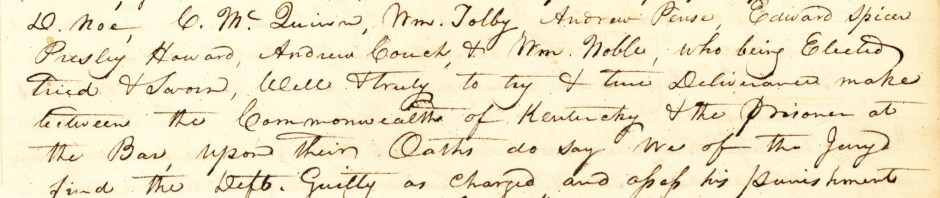 D. Noe, C. Mc Quinn, Wm. Tolby, Andrew Pense, Edward Spicer
Presley Howard, Andrew Couch, & Wm. Noble, who being Elected
tried & Sworn, Well & truly to try & true Deliverance make
between the Commonwealth of Kentucky & the Prisoner at
the Bar, upon their Oaths do say We of the Jury
find the Deft. Guilty as Charged and assess his punishment